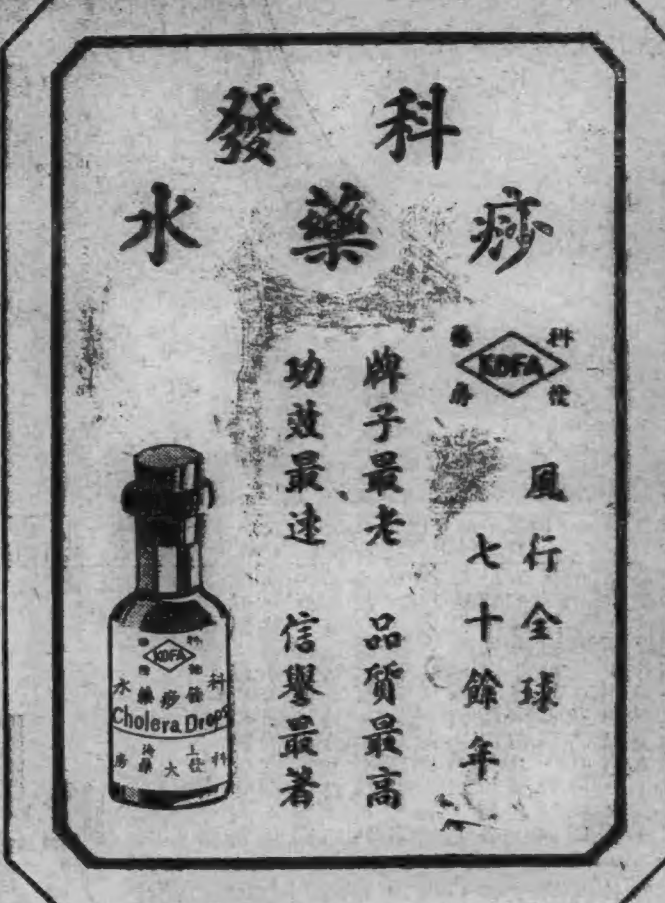 科發
痧藥水
KOFA
科發藥房
風行全球
七十餘年
牌子最老 品質最高
功效最速 信譽最著
KOFA
科發痧藥水
Cholera Drops
上海
科發大藥房